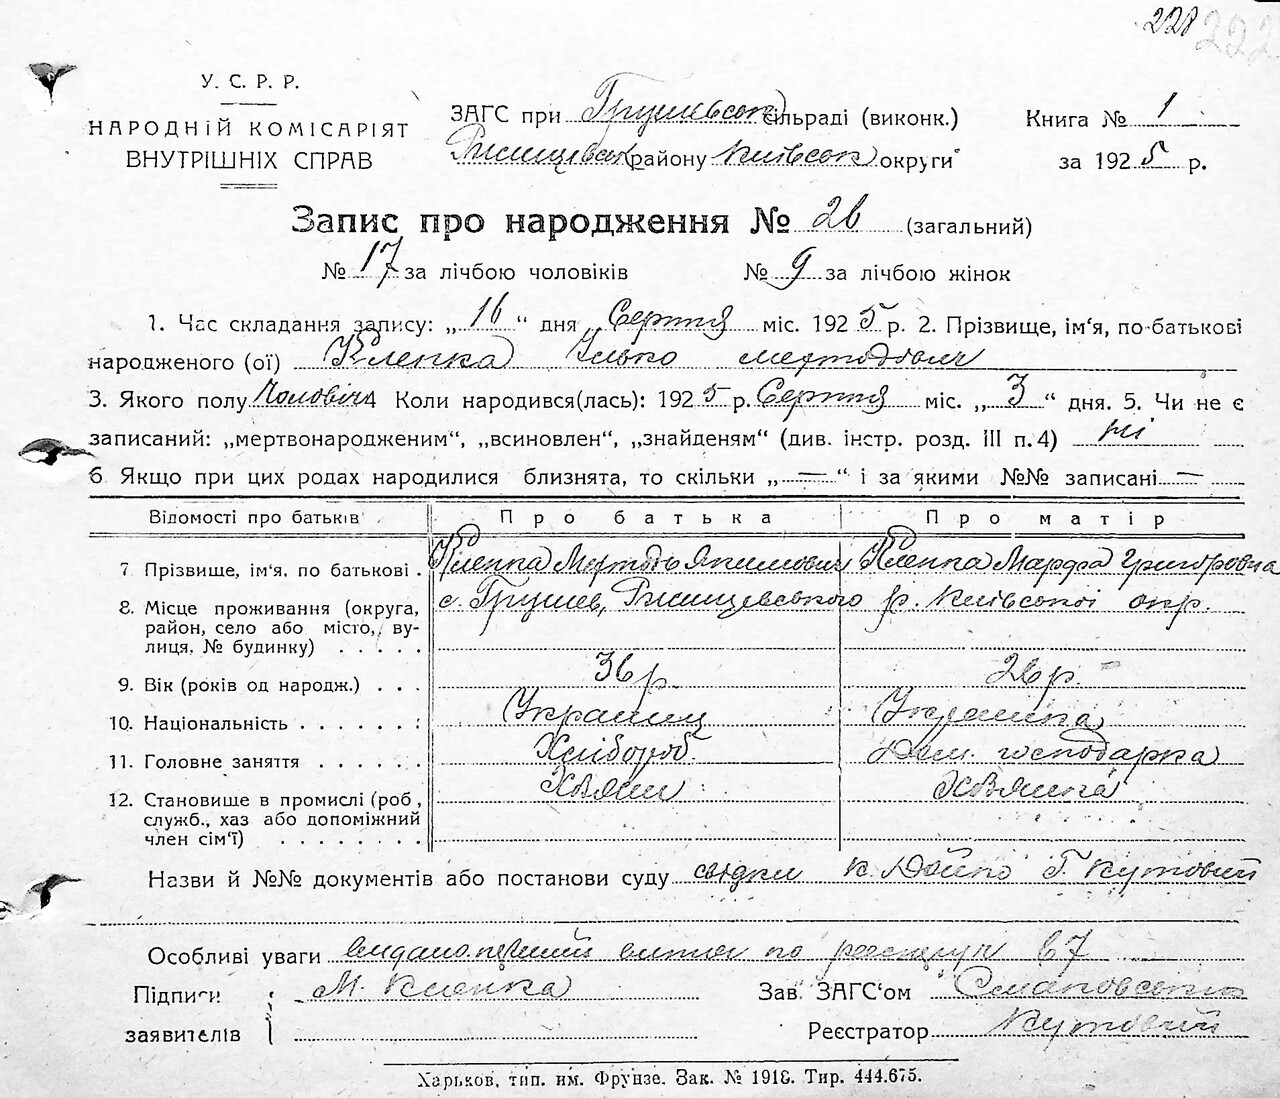 228 222
У. С. Р. Р.
НАРОДНІЙ КОМІСАРІЯТ
ВНУТРІШНІХ СПРАВ
ЗАГС при Грушевськ сільраді (виконк.)
Ржищевськ району Київськ округи
Книга № 1
за 1925 р.
Запис про народження № 26 (загальний)
№ 17 за лічбою чоловіків № 9 за лічбою жінок
1. Час складання запису: „16“ дня Серпня міс. 1925 р. 2. Прізвище, ім'я, по-батькові
народженого (ої) Клепка Ілько
3. Якого полу Чоловіч 4 Коли народився(лась): 1925 р. Серпня міс. „3“ дня. 5. Чи не є
записаний: „мертвонародженим“, „всиновлен“, „знайденям“ (див. інстр. розд. III п. 4) ні
6 Якщо при цих родах народилися близнята, то скільки „—“ і за якими №№ записані —
Відомості про батьків Про батька Про матір
7 Прізвище, ім'я, по батькові . Клепка Якимович Клепка Марфа Григоровна
8. Місце проживання (округа, с. Грушев, Ржищевського р. Київської окр.
район, село або місто, ву-
лиця, № будинку) . . . . .
9. Вік (років од народж.) . . . 36 р. 26 р.
10. Національність . . . . . . Украинц Украинка
11. Головне заняття . . . . . . Хлібороб. Дом. господарка
12. Становище в промислі (роб., Хозяин Хозяйка
служб., хаз або допоміжний
член сім'ї) . . . . . . . .
Назви й №№ документів або постанови суду свідки К. Г. Кутовий
Особливі уваги видано витяг по 67
Підписи М. Клепка Зав. ЗАГС'ом
заявителів Реєстратор Кутовий
Харьков, тип. им. Фрунзе. Зак. № 1918. Тир. 444.675.